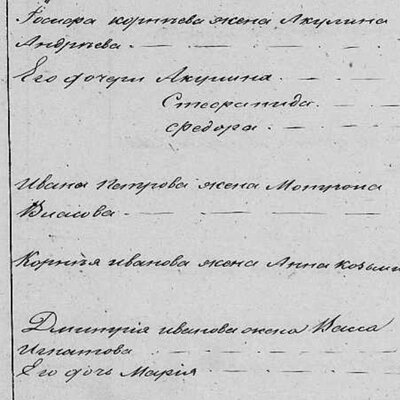 Госифора корнѣева жена Акулина
Андрѣева
Его дочери Акулина
Стефанида
Федора
Ивана Петрова жена Матрона
Власова
Корнѣя иванова жена Анна козьми
Дмитрія иванова жена Васса
Игнатова
Его дочь Марія